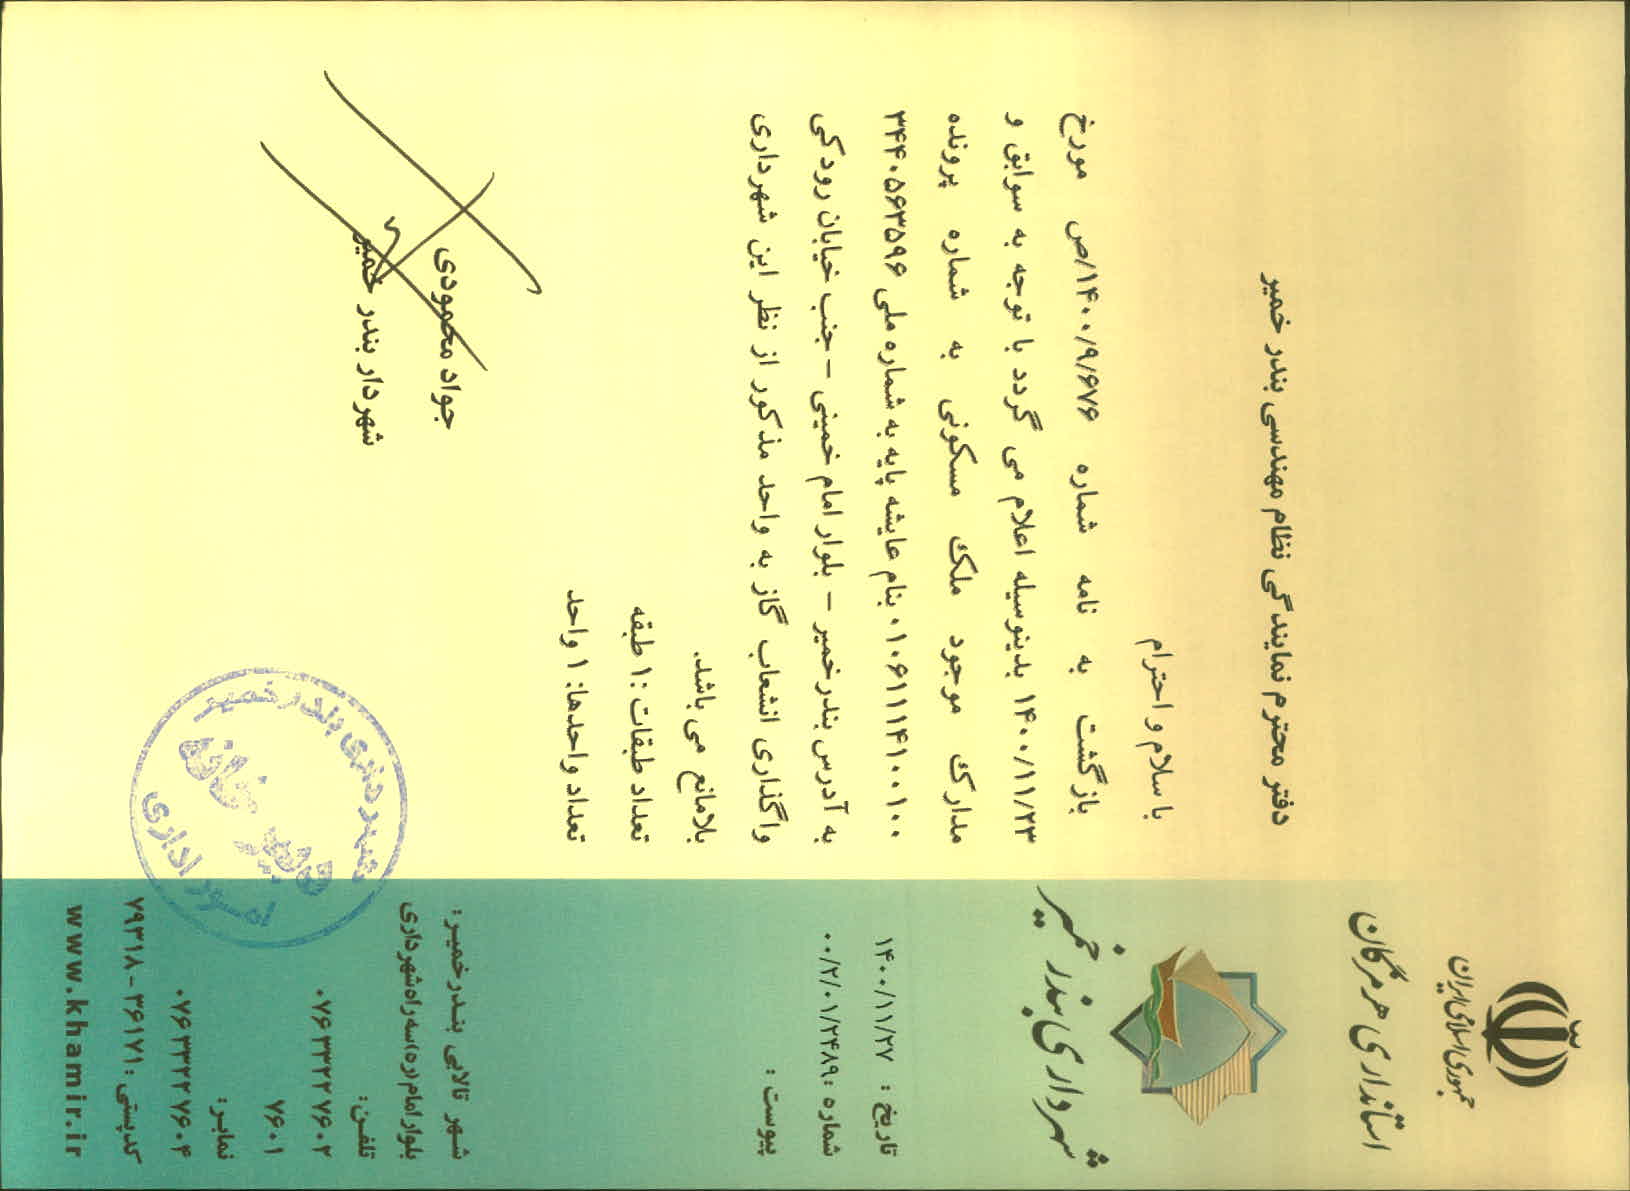 جمهوری اسلامی ایران
استانداری هرمزگان
شهرداری بندر خمیر
تاریخ : ۱۴۰۰/۱۱/۲۷
شماره :۰۰/۲/۰۱/۲۴۸۹
پیوست :
دفتر محترم نمایندگی نظام مهندسی بندر خمیر
با سلام و احترام
بازگشت به نامه شماره ۱۴۰۰/۹/۶۷۶/ص مورخ
۱۴۰۰/۱۱/۲۳ بدینوسیله اعلام می گردد با توجه به سوابق و
مدارک موجود ملک مسکونی به شماره پرونده
۰۱۰۶۱۱۱۴۱۰۰۱۰۰ بنام عایشه پایه به شماره ملی ۳۴۴۰۵۶۳۵۹۶
به آدرس بندرخمیر – بلوار امام خمینی – جنب خیابان رودکی
واگذاری انشعاب گاز به واحد مذکور از نظر این شهرداری
بلامانع می باشد.
تعداد طبقات :۱ طبقه
تعداد واحدها: ۱ واحد
جواد محمودی
شهردار بندر خمیر
شهرداری بندر خمیر
دبیرخانه
امور اداری
شهر تالابی بندرخمیر :
بلوار امام (ره) سه راه شهرداری
تلفن:
۰۷۶۳۳۲۲۷۶۰۲
۷۶۰۱
نمابر:
۰۷۶۳۳۲۲۷۶۰۴
کدپستی : ۳۶۱۷۱ - ۷۹۳۱۸
www.khamir.ir